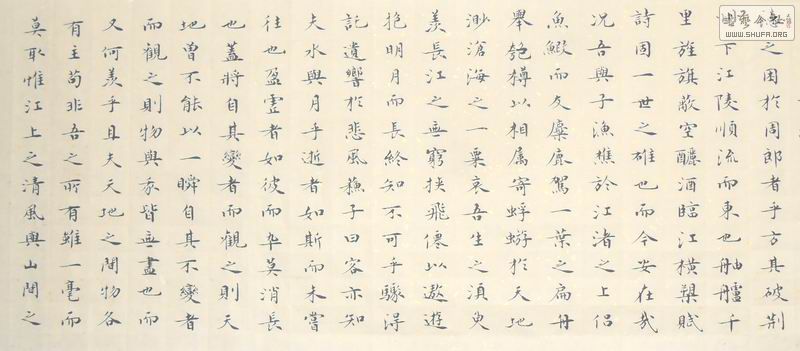 之困於周郎者乎方其破荆
下江陵順流而東也舳艫千
里旌旗蔽空釃酒臨江橫槊賦
詩固一世之雄也而今安在哉
況吾與子漁樵於江渚之上侶
魚鰕而友麋鹿駕一葉之扁舟
舉匏樽以相属寄蜉蝣於天地
渺滄海之一粟哀吾生之須臾
羨長江之無窮挾飛僊以遨遊
抱明月而長終知不可乎驟得
託遺響於悲風蘇子曰客亦知
夫水與月乎逝者如斯而未嘗
往也盈虛者如彼而卒莫消長
也蓋將自其變者而觀之則天
地曾不能以一瞬自其不變者
而觀之則物與我皆無盡也而
又何羨乎且夫天地之間物各
有主苟非吾之所有雖一毫而
莫取惟江上之清風與山間之
WWW.SHUFA.ORG